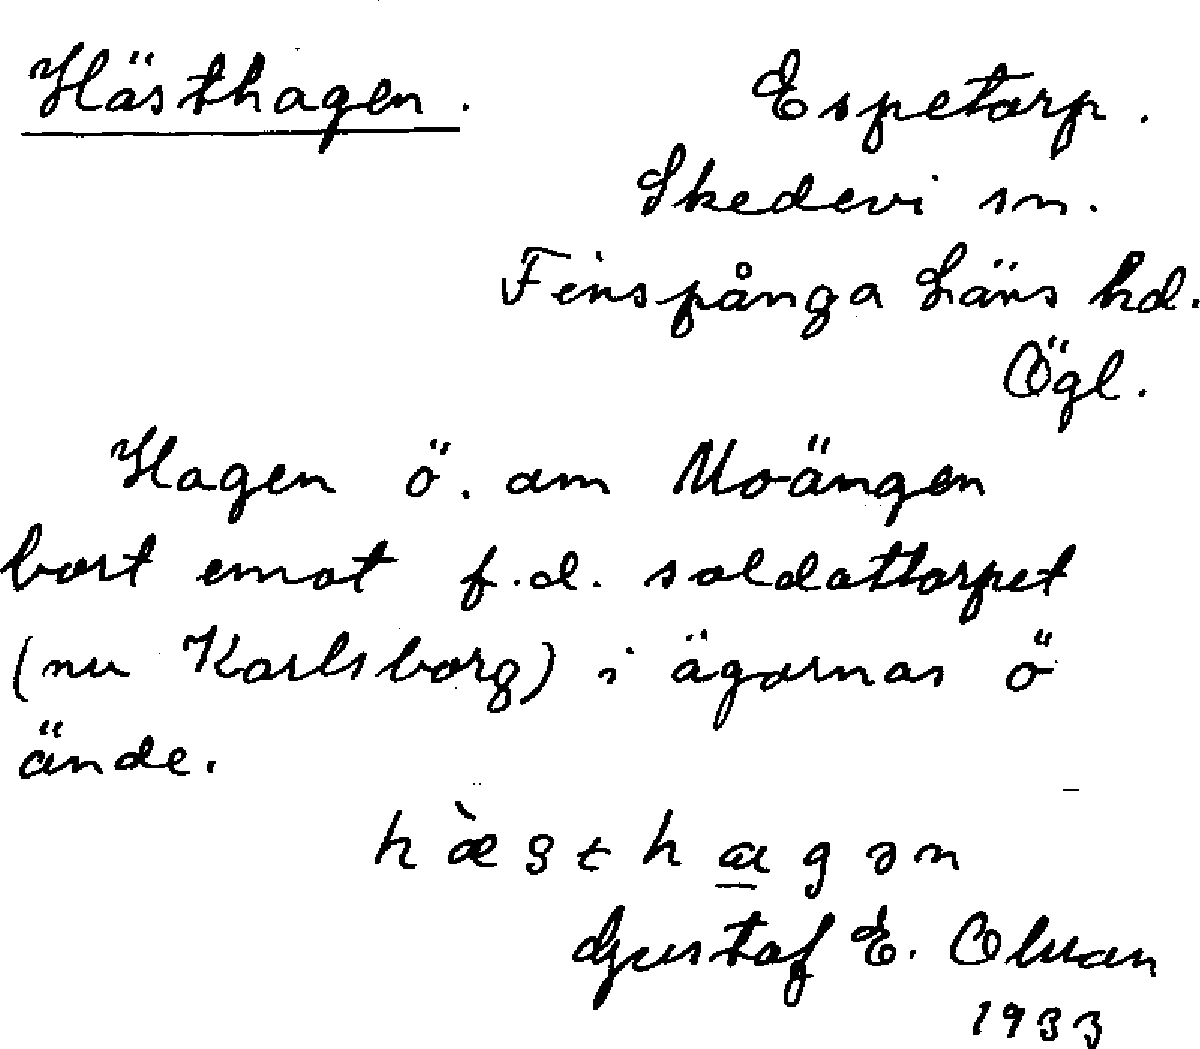 Hästhagen. Espetorp.
Skedevi sn.
Finspånga Läns hd.
Ögl.
Hagen ö. om Moängen
bort emot f.d. soldattorpet
(nu Karlsborg) i ägornas ö
ände.
Gustaf E. Olsson
1933